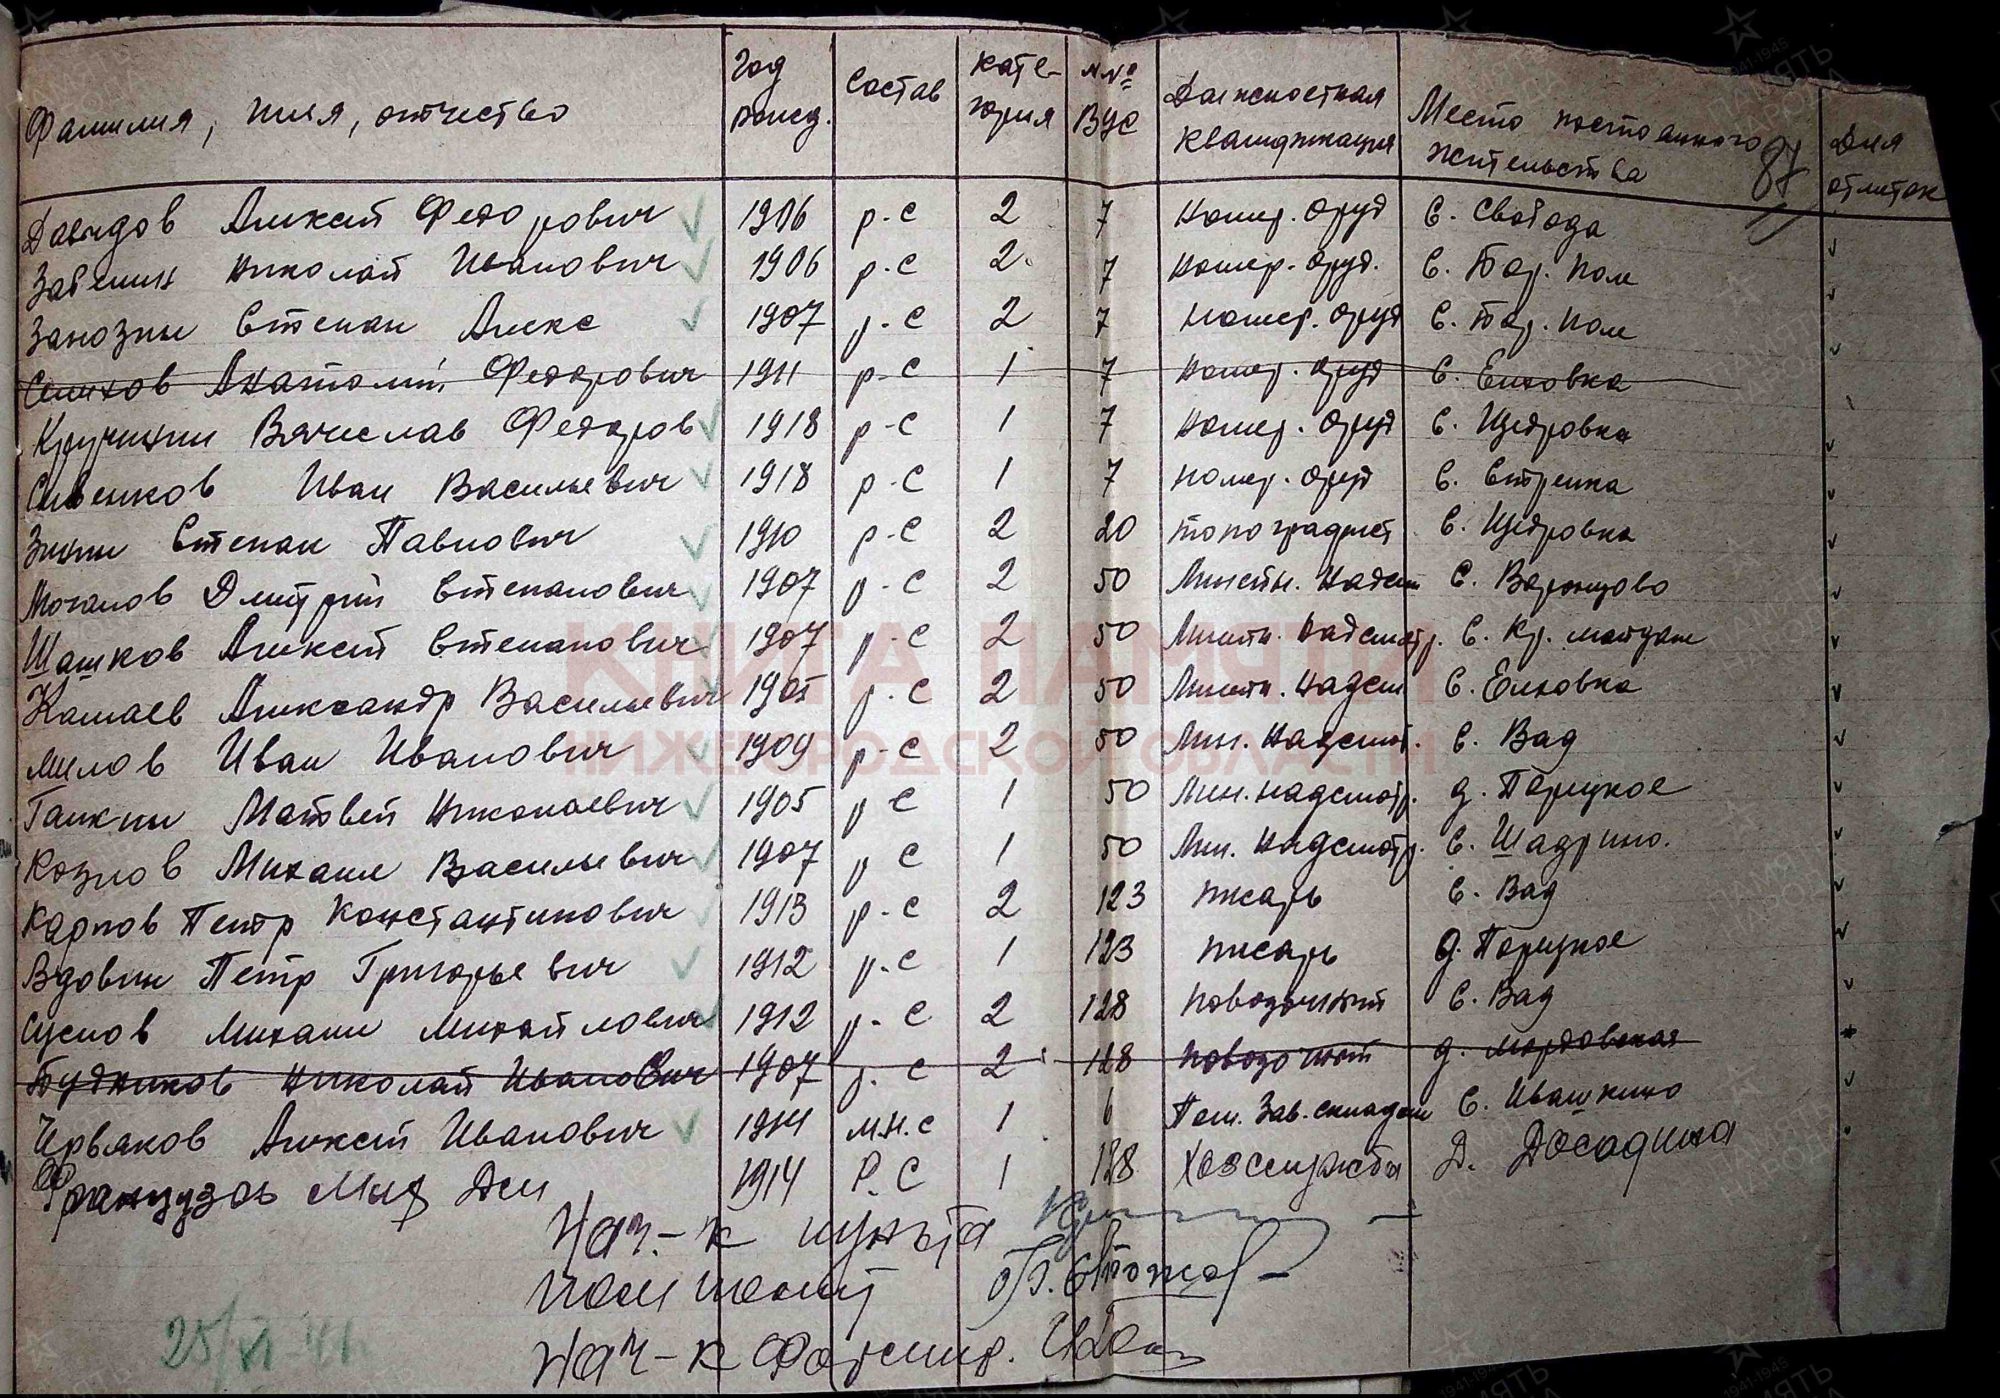 Фамилия, имя, отчество Год рожд. Состав Кате-гория №№ ВУС Должностная квалификация Место постоянного жительства Для отметок
87
Давыдов Алексей Федорович 1906 р-с 2 7 номер. оруд с. Свобода
Николай Иванович 1906 р-с 2 7 номер. оруд. с. Бор. Пол
Занозин Степан Алекс 1907 р-с 2 7 номер. оруд с. Бор. Пол
Анатолий Федорович 1911 р-с 1 7 номер. оруд с. Елховка
Кручинин Вячеслав Федоров 1918 р-с 1 7 номер. оруд с. Щедровка
Иван Васильевич 1918 р-с 1 7 номер. оруд с. Стрелка
Зинин Степан Павлович 1910 р-с 2 20 топографист с. Щедровка
Мочалов Дмитрий Степанович 1907 р-с 2 50 Линейн. Надсм с. Воронцово
Шашков Алексей Степанович 1907 р-с 2 50 Линейн. Надсмотр. с. Кр. майдан
Камаев Александр Васильевич 1905 р-с 2 50 Линейн. Надсм с. Елховка
Милов Иван Иванович 1909 р-с 2 50 Лин. Надсмот. с. Вад
Галкин Матвей Николаевич 1905 р с 1 50 Лин. надсмотр. д. Порецкое
Козлов Михаил Васильевич 1907 р с 1 50 Лин. Надсмотр. с. Шадрино.
Карпов Петр Константинович 1913 р-с 2 123 писарь с. Вад
Вдовин Петр Григорьевич 1912 р-с 1 123 писарь д. Порецкое
Суслов Михаил Михайлович 1912 р-с 2 128 повозочный с. Вад
Будников Николай Иванович 1907 р-с 2 128 повозочный д. Мордовская
Червяков Алексей Иванович 1914 м.н.с 1 6 Пом. Зав. складом с. Ивашкино
Французов Мих Дм 1914 Р.С 1 128 Хозслужбы Д. Досадина
Нач.-к пункта
Нач-к Формир.
25/VI-41г
КНИГА ПАМЯТИ
НИЖЕГОРОДСКОЙ ОБЛАСТИ